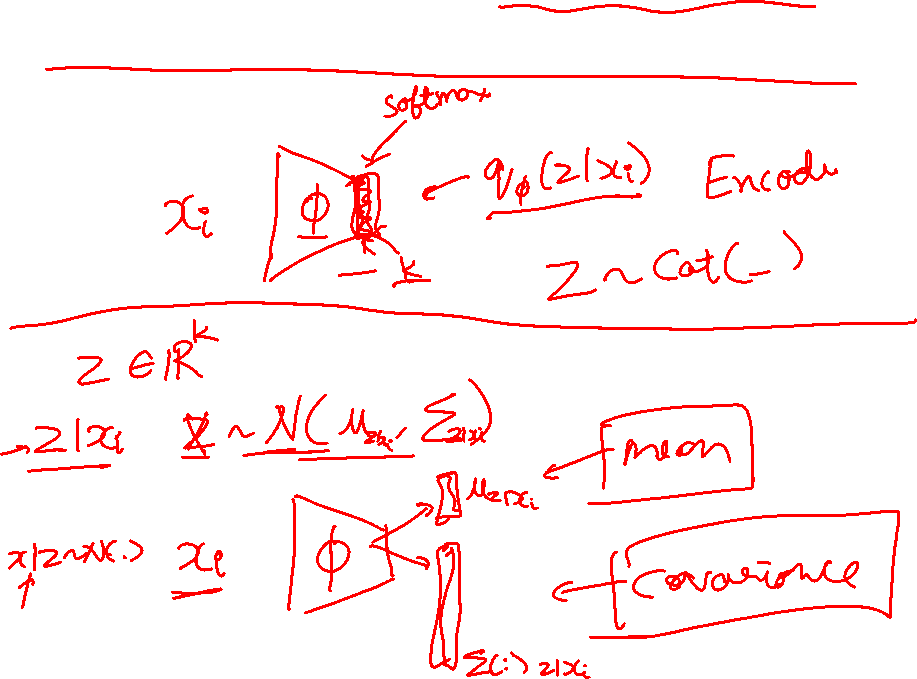 softmax
xᵢ ϕ q_ϕ(z|xᵢ) Encode
k
Z ~ Cat(–)
z ∈ ℝᵏ
→ z|xᵢ ~ N(μ_{z|xᵢ}, Σ_{z|xᵢ})
mean
μ_{z|xᵢ}
x|z ~ N(.) xᵢ ϕ
Covariance
Σ(i) z|xᵢ